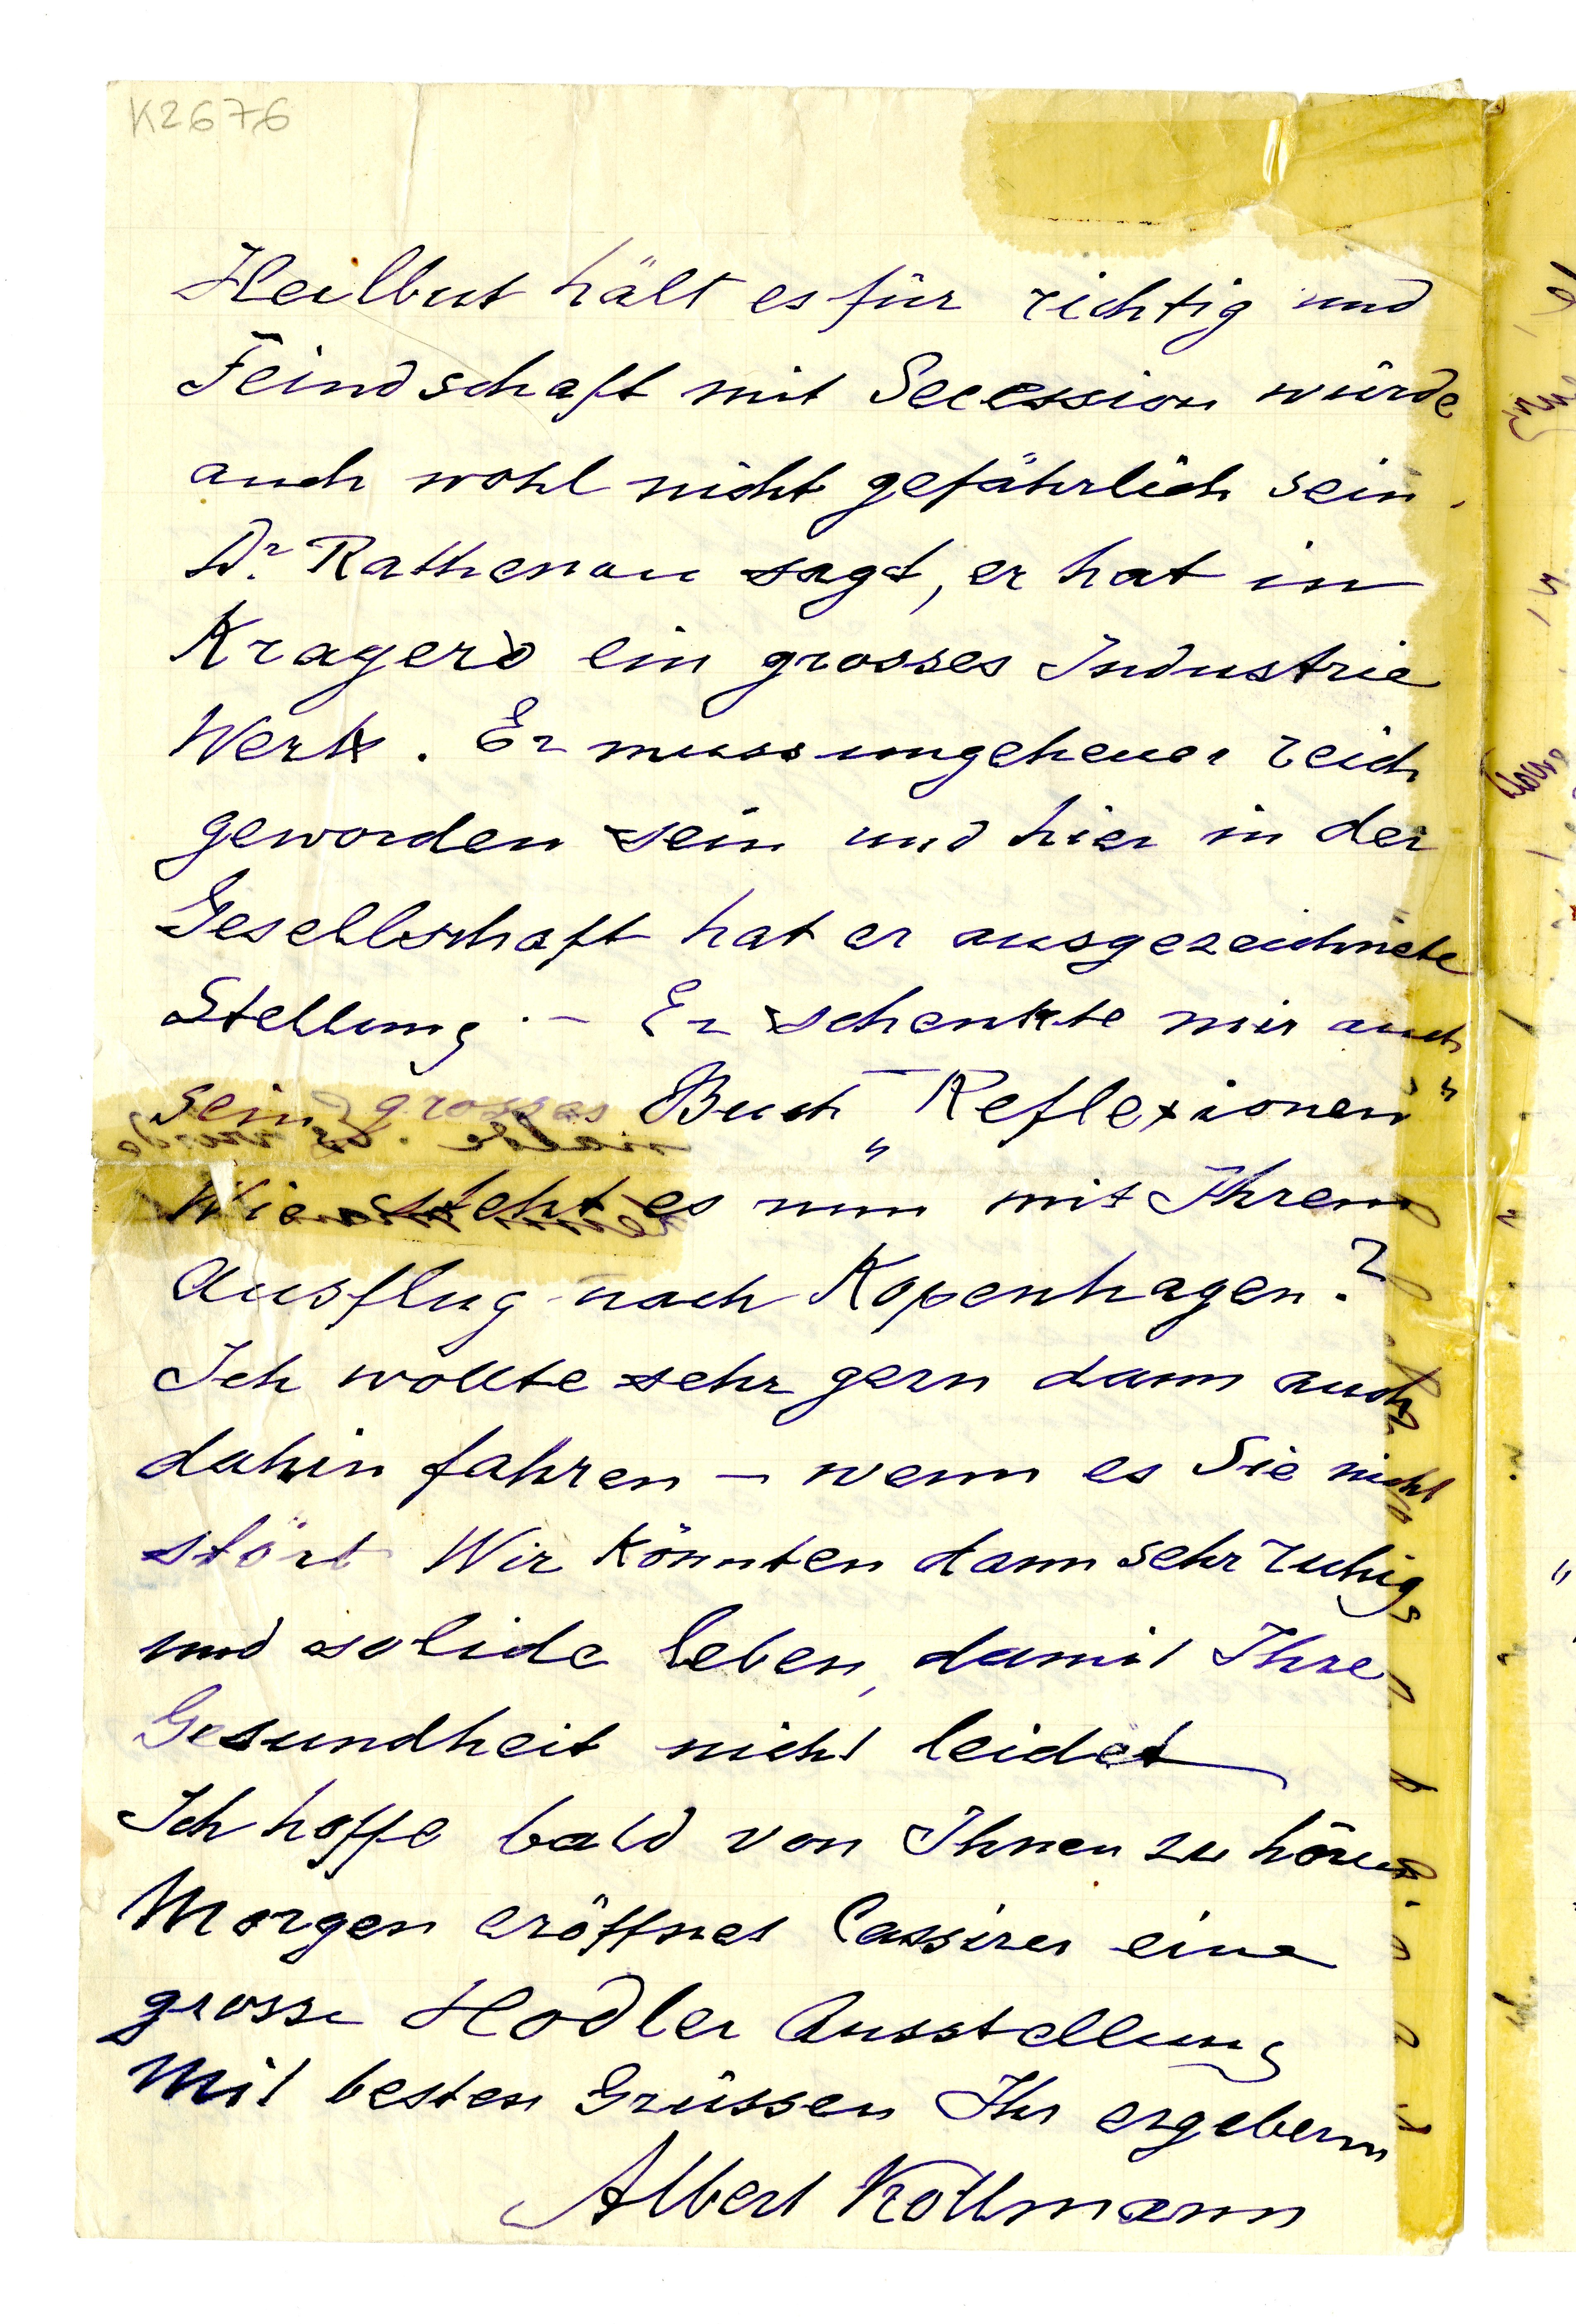 K2676
Heilbut hält es für richtig und
Feindschaft mit Secession würde
auch wohl nicht gefährlich sein.
Dr. Rathenau sagt, er hat in
Kragerö ein grosses Industrie
Werk. Er muss ungeheuer reich
geworden sein und hier in der
Gesellschaft hat er ausgezeichnete
Stellung. – Er schenkte mir auch
sein grosses Buch „Reflexionen"
Wie steht es nun mit Ihrem
Ausflug nach Kopenhagen?
Ich wollte sehr gern dann auch
dahin fahren – wenn es Sie nicht
stört Wir könnten dann sehr ruhig
und solide leben, damit Ihre
Gesundheit nicht leidet
Ich hoffe bald von Ihnen zu hören
Morgen eröffnet Cassirer eine
grosse Hodler Ausstellung
Mit besten Grüssen Ihr ergebener
Albert Kollmann